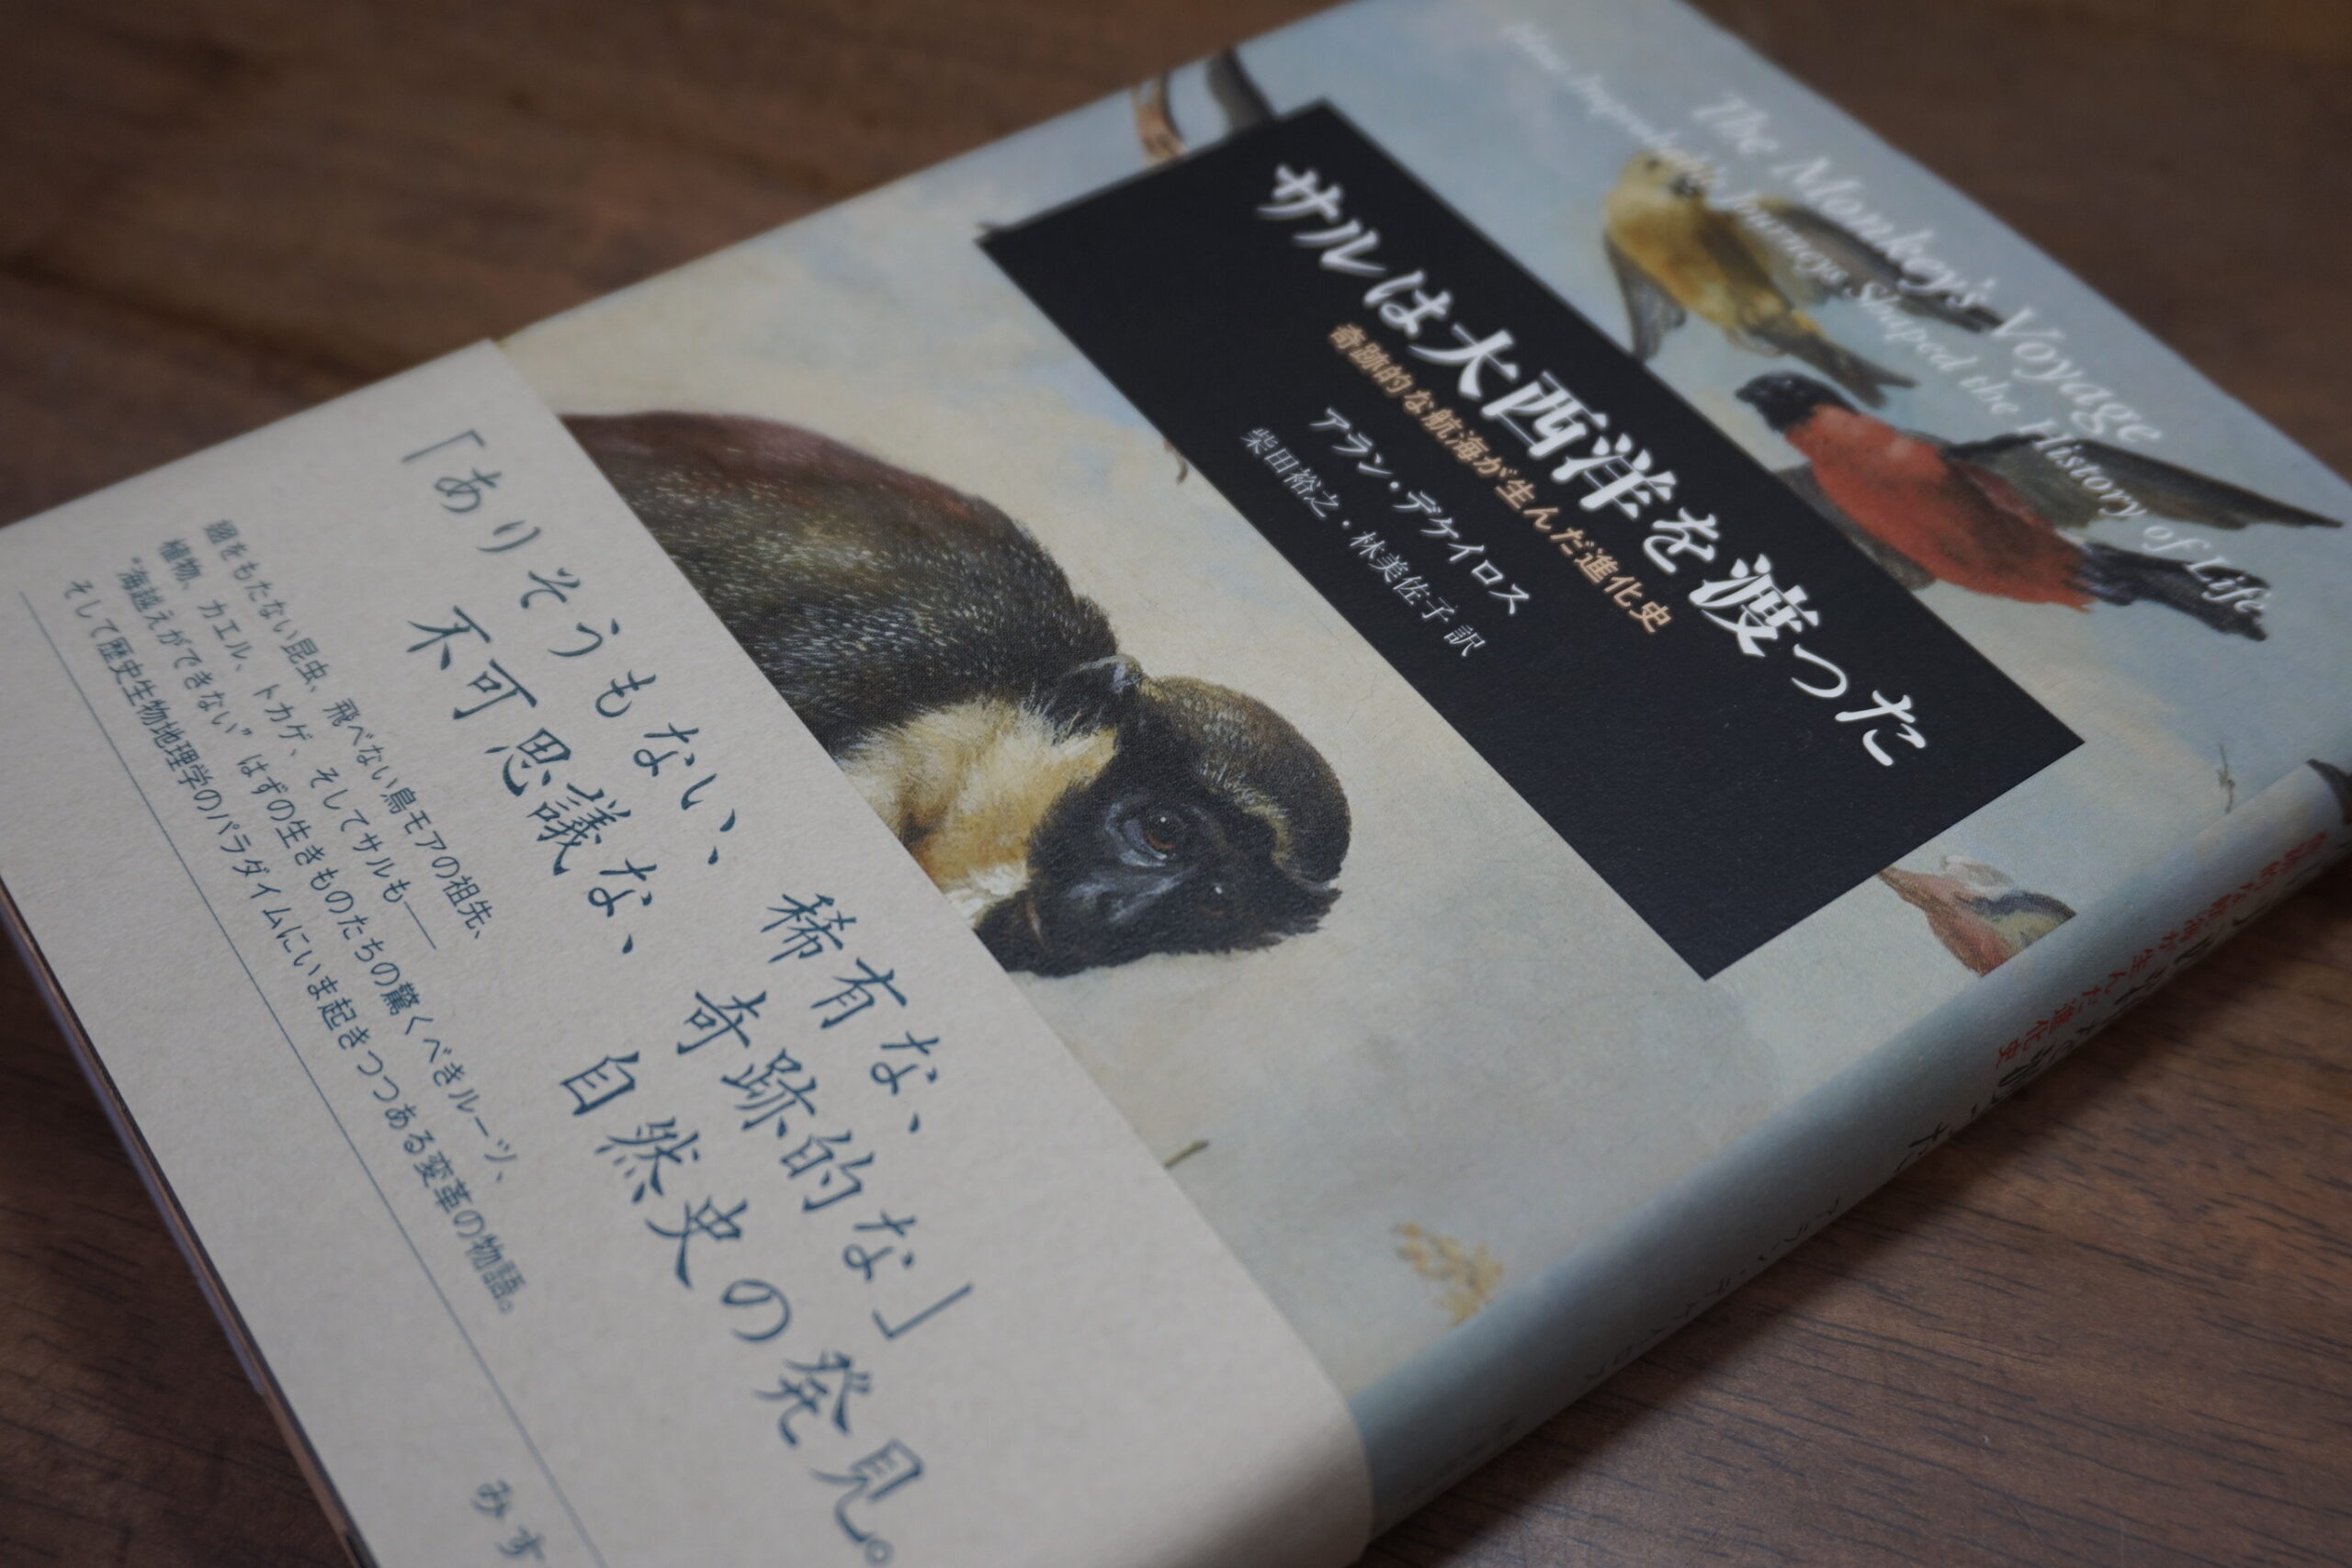 The Monkey's Voyage
How Improbable Journeys Shaped the History of Life
サルは大西洋を渡った
奇跡的な航海が生んだ進化史
アラン・デケイロス
柴田裕之・林美佐子 訳
「ありそうもない、稀有な、
不可思議な、奇跡的な」
自然史の発見。
翅をもたない昆虫、飛べない鳥モアの祖先、
植物、カエル、トカゲ、そしてサルも——
“海越えができない”はずの生きものたちの驚くべきルーツ、
そして歴史生物地理学のパラダイムにいま起きつつある変革の物語。
みす
奇跡的な航海が生んだ進化史
アラン・デケイロス